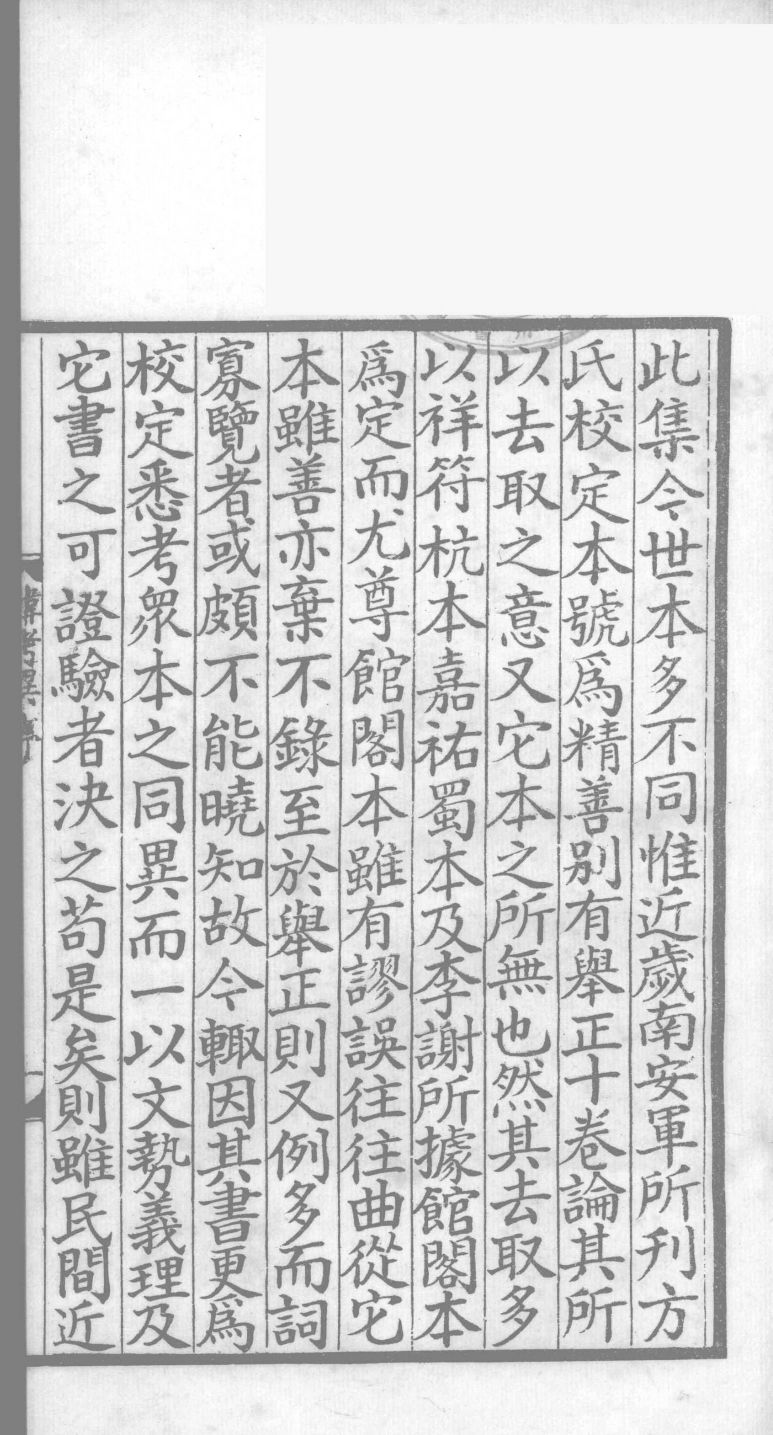 此集今世本多不同惟近歲南安軍所刋方
氏校定本號爲精善别有舉正十卷論其所
以去取之意又它本之所無也然其去取多
以祥符杭本嘉祐蜀本及李謝所據館閣本
爲定而尤尊館閣本雖有謬誤往往曲從它
本雖善亦棄不錄至於舉正則又例多而詞
寡覽者或頗不能曉知故今輙因其書更爲
校定悉考衆本之同異而一以文勢義理及
它書之可證驗者决之苟是矣則雖民間近
韓考異序